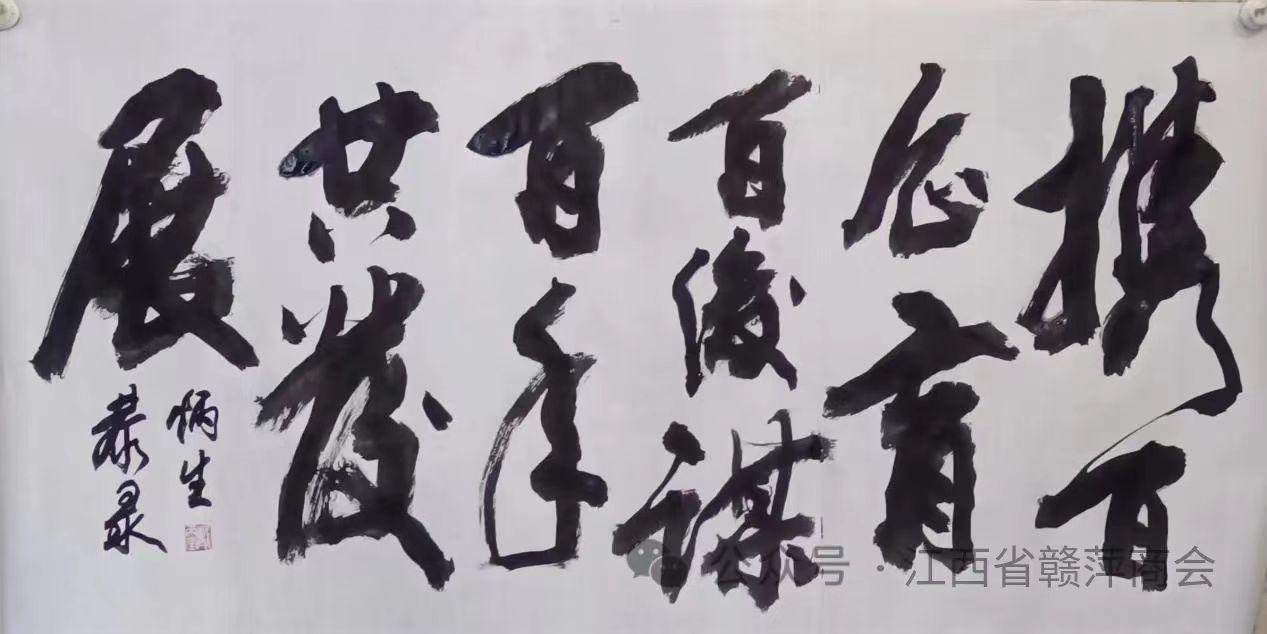 携百
企育
百俊谋
百年
共发
展
炳生
恭录
公众号 · 江西省赣萍商会